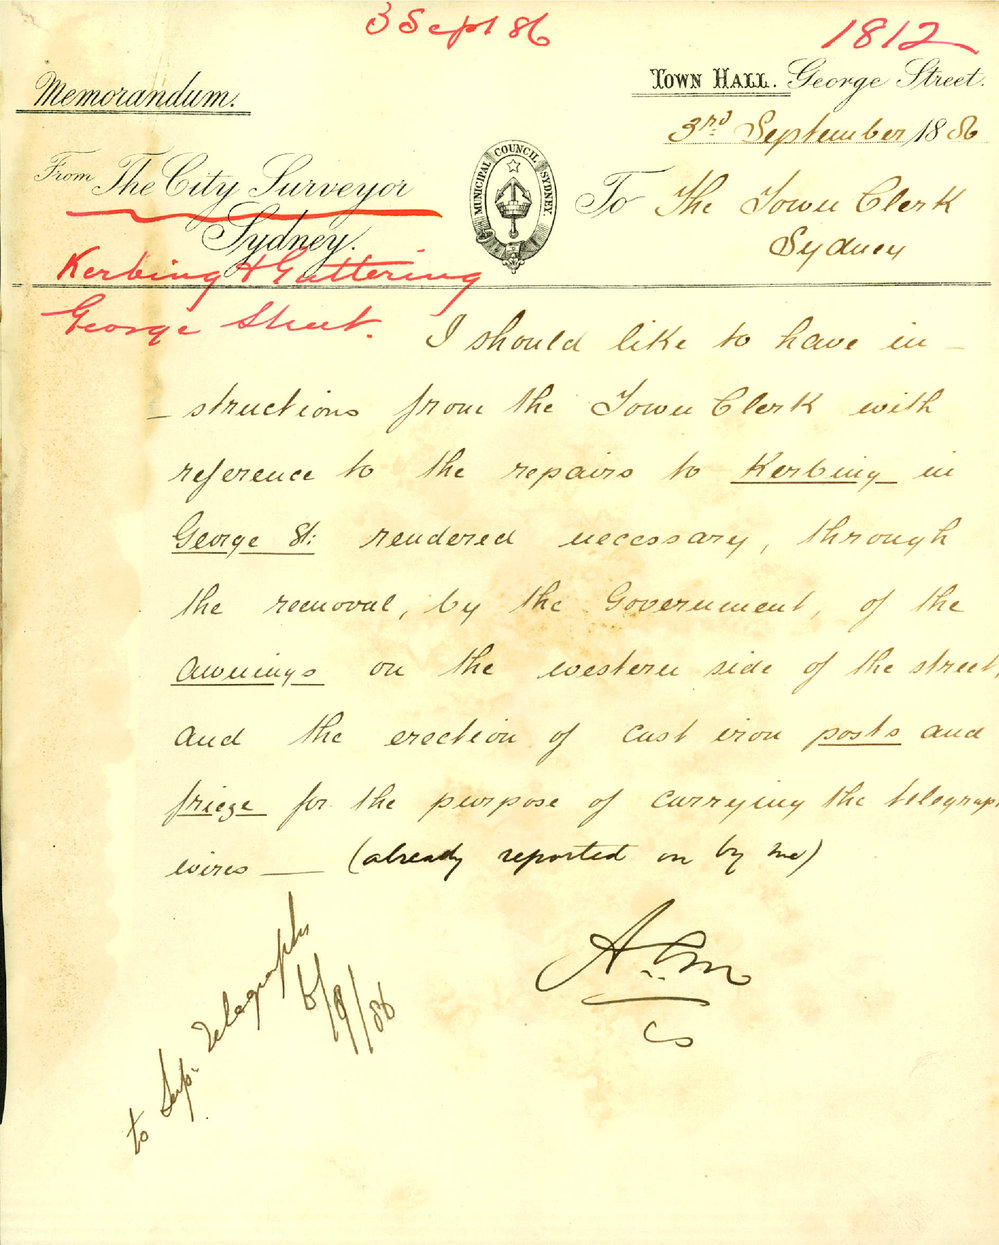 3 Sept 86
1812
Memorandum.
TOWN HALL. George Street.
3rd September, 1886
From The City Surveyor
Sydney.
MUNICIPAL COUNCIL SYDNEY.
To The Town Clerk
Sydney
Kerbing & Guttering
George Street.
I should like to have in-
-structions from the Town Clerk with
reference to the repairs to Kerbing in
George St: rendered necessary, through
the removal, by the Government, of the
awnings on the western side of the street,
and the erection of cast iron posts and
frieze for the purpose of carrying the telegraph
wires — (already reported on by me)
CS
to Sup. Telegraphs
6/9/86